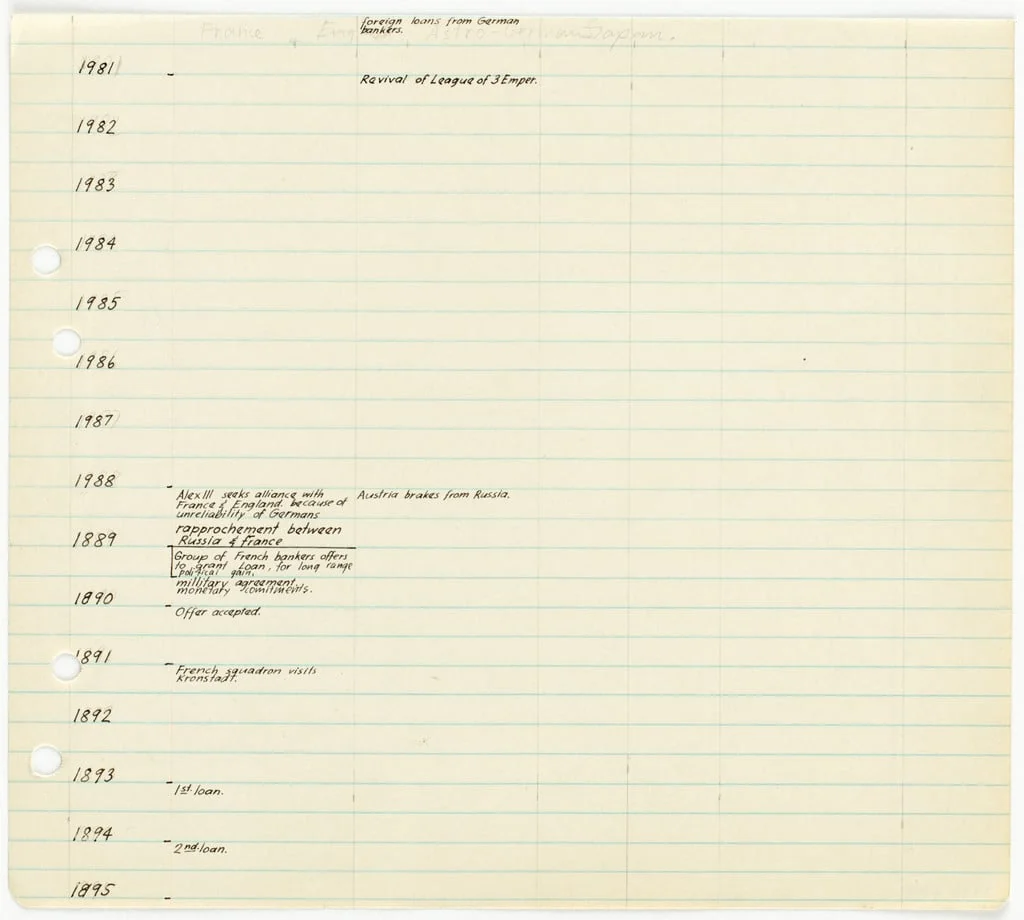 foreign loans from German
bankers.
France
1981
Revival of League of 3 Emper.
1982
1983
1984
1985
1986
1987
1988
Alex III seeks alliance with
France & England. because of
unreliability of Germans
Austria brakes from Russia.
rapprochement between
1889
Russia & france
Group of French bankers offers
to grant Loan, for long range
political gain.
millitary agreement,
monetary comitments.
1890
Offer accepted.
1891
French squadron visits
Kronstadt.
1892
1893
1st loan.
1894
2nd loan.
1895